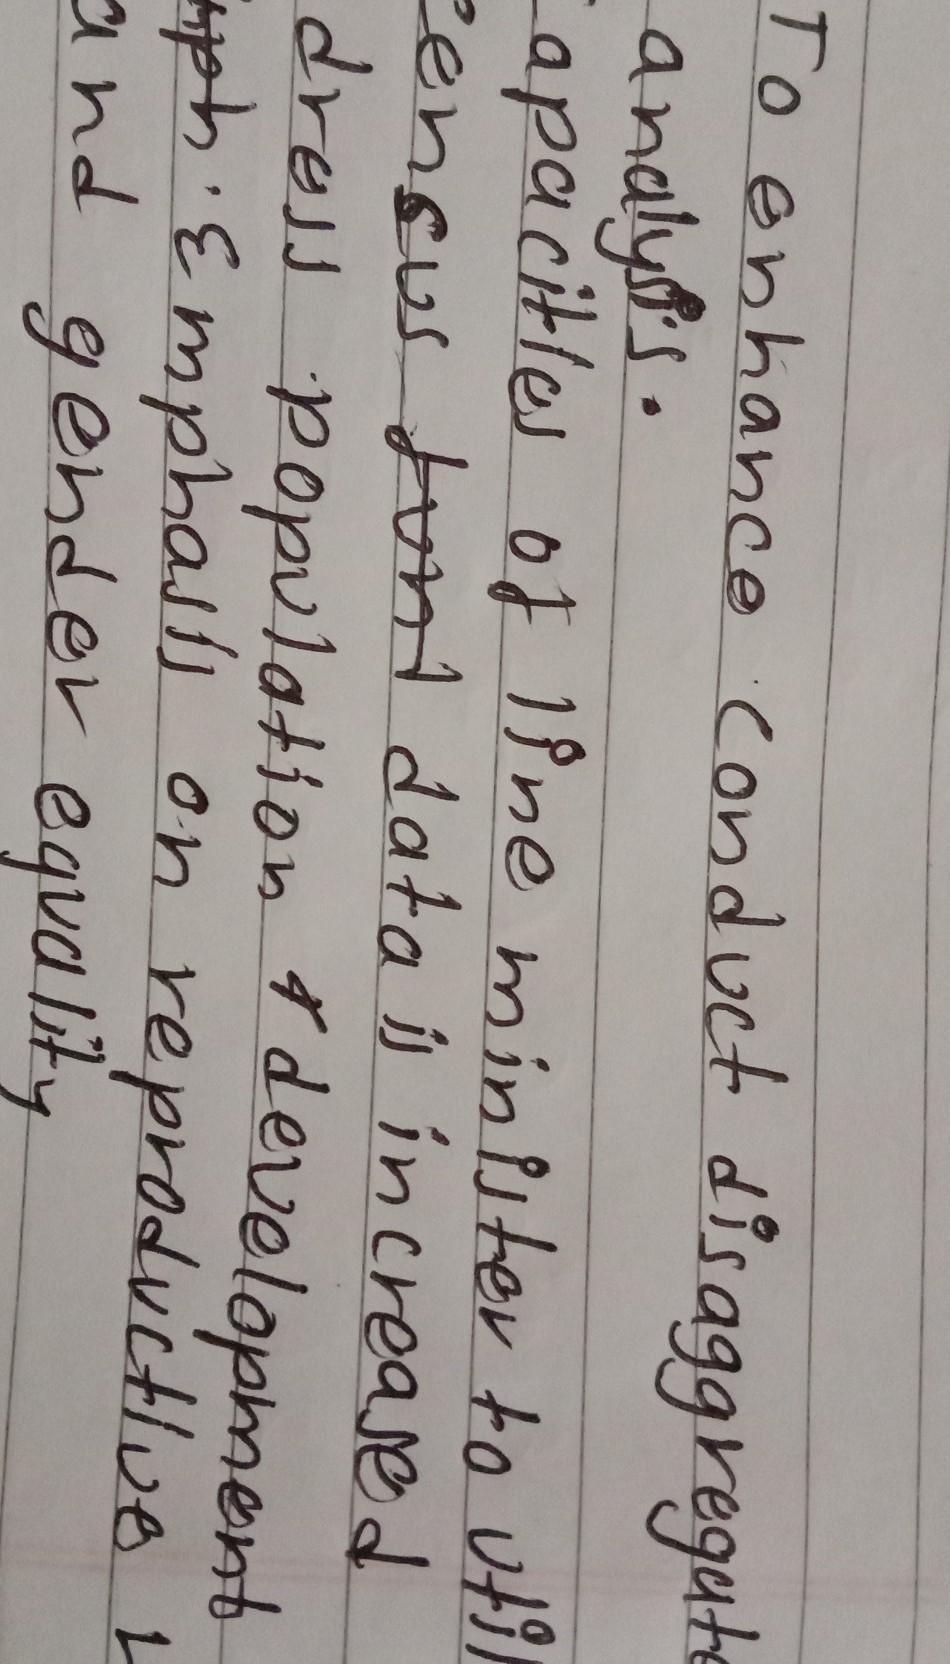 To enhance conduct disaggregate
analysis.
capacities of line minister to util
census data is increased
dress population & development
Emphasis on reproductive h
and gender equality